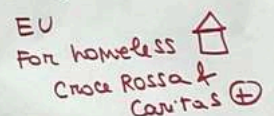 EU
For homeless
Croce Rossa &
Caritas